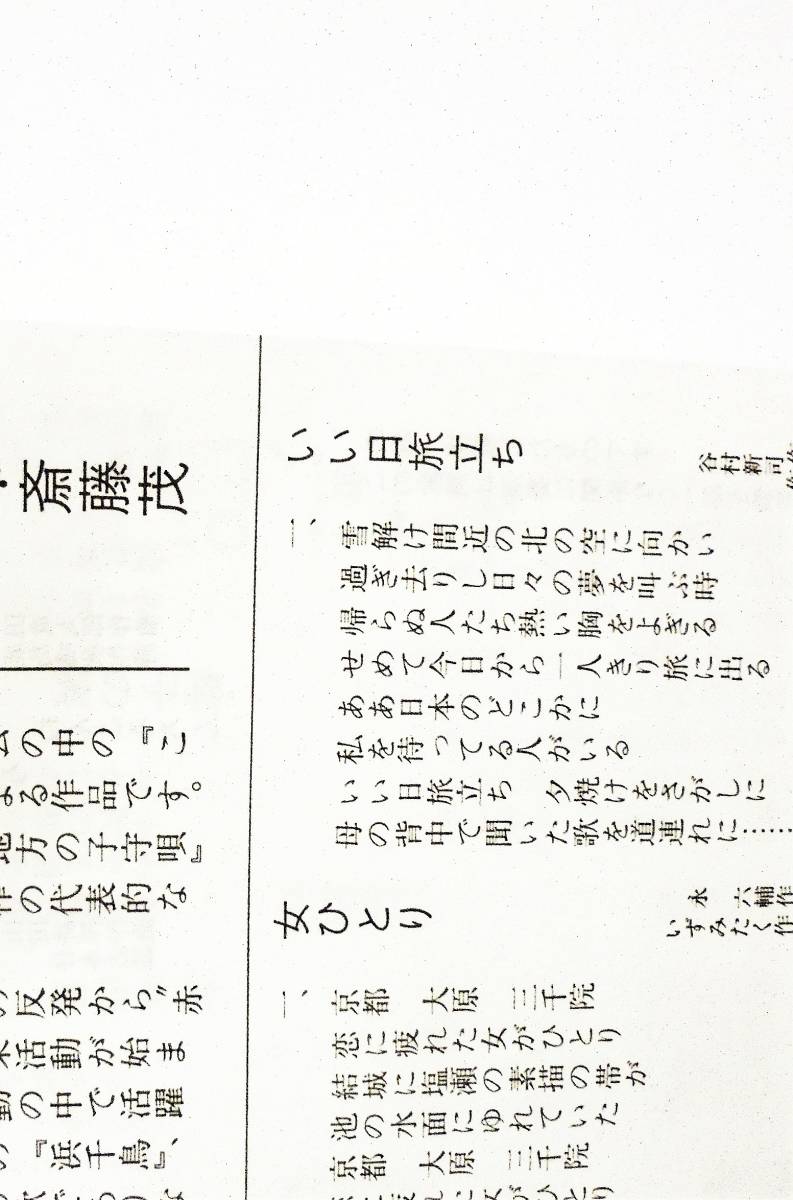 斎藤茂
の中の『こ
る作品です。
地方の子守唄』
作の代表的な
の反発から〝赤
活動が始ま
動の中で活躍
の『浜千鳥』、
いい日旅立ち
谷村新司
一、雪解け間近の北の空に向かい
過ぎ去りし日々の夢を叫ぶ時
帰らぬ人たち熱い胸をよぎる
せめて今日から一人きり旅に出る
ああ日本のどこかに
私を待ってる人がいる
いい日旅立ち　夕焼けをさがしに
母の背中で聞いた歌を道連れに……
女ひとり
永　六輔作
いずみたく作
一、京都　大原　三千院
恋に疲れた女がひとり
結城に塩瀬の素描の帯が
池の水面にゆれていた
京都　大原　三千院